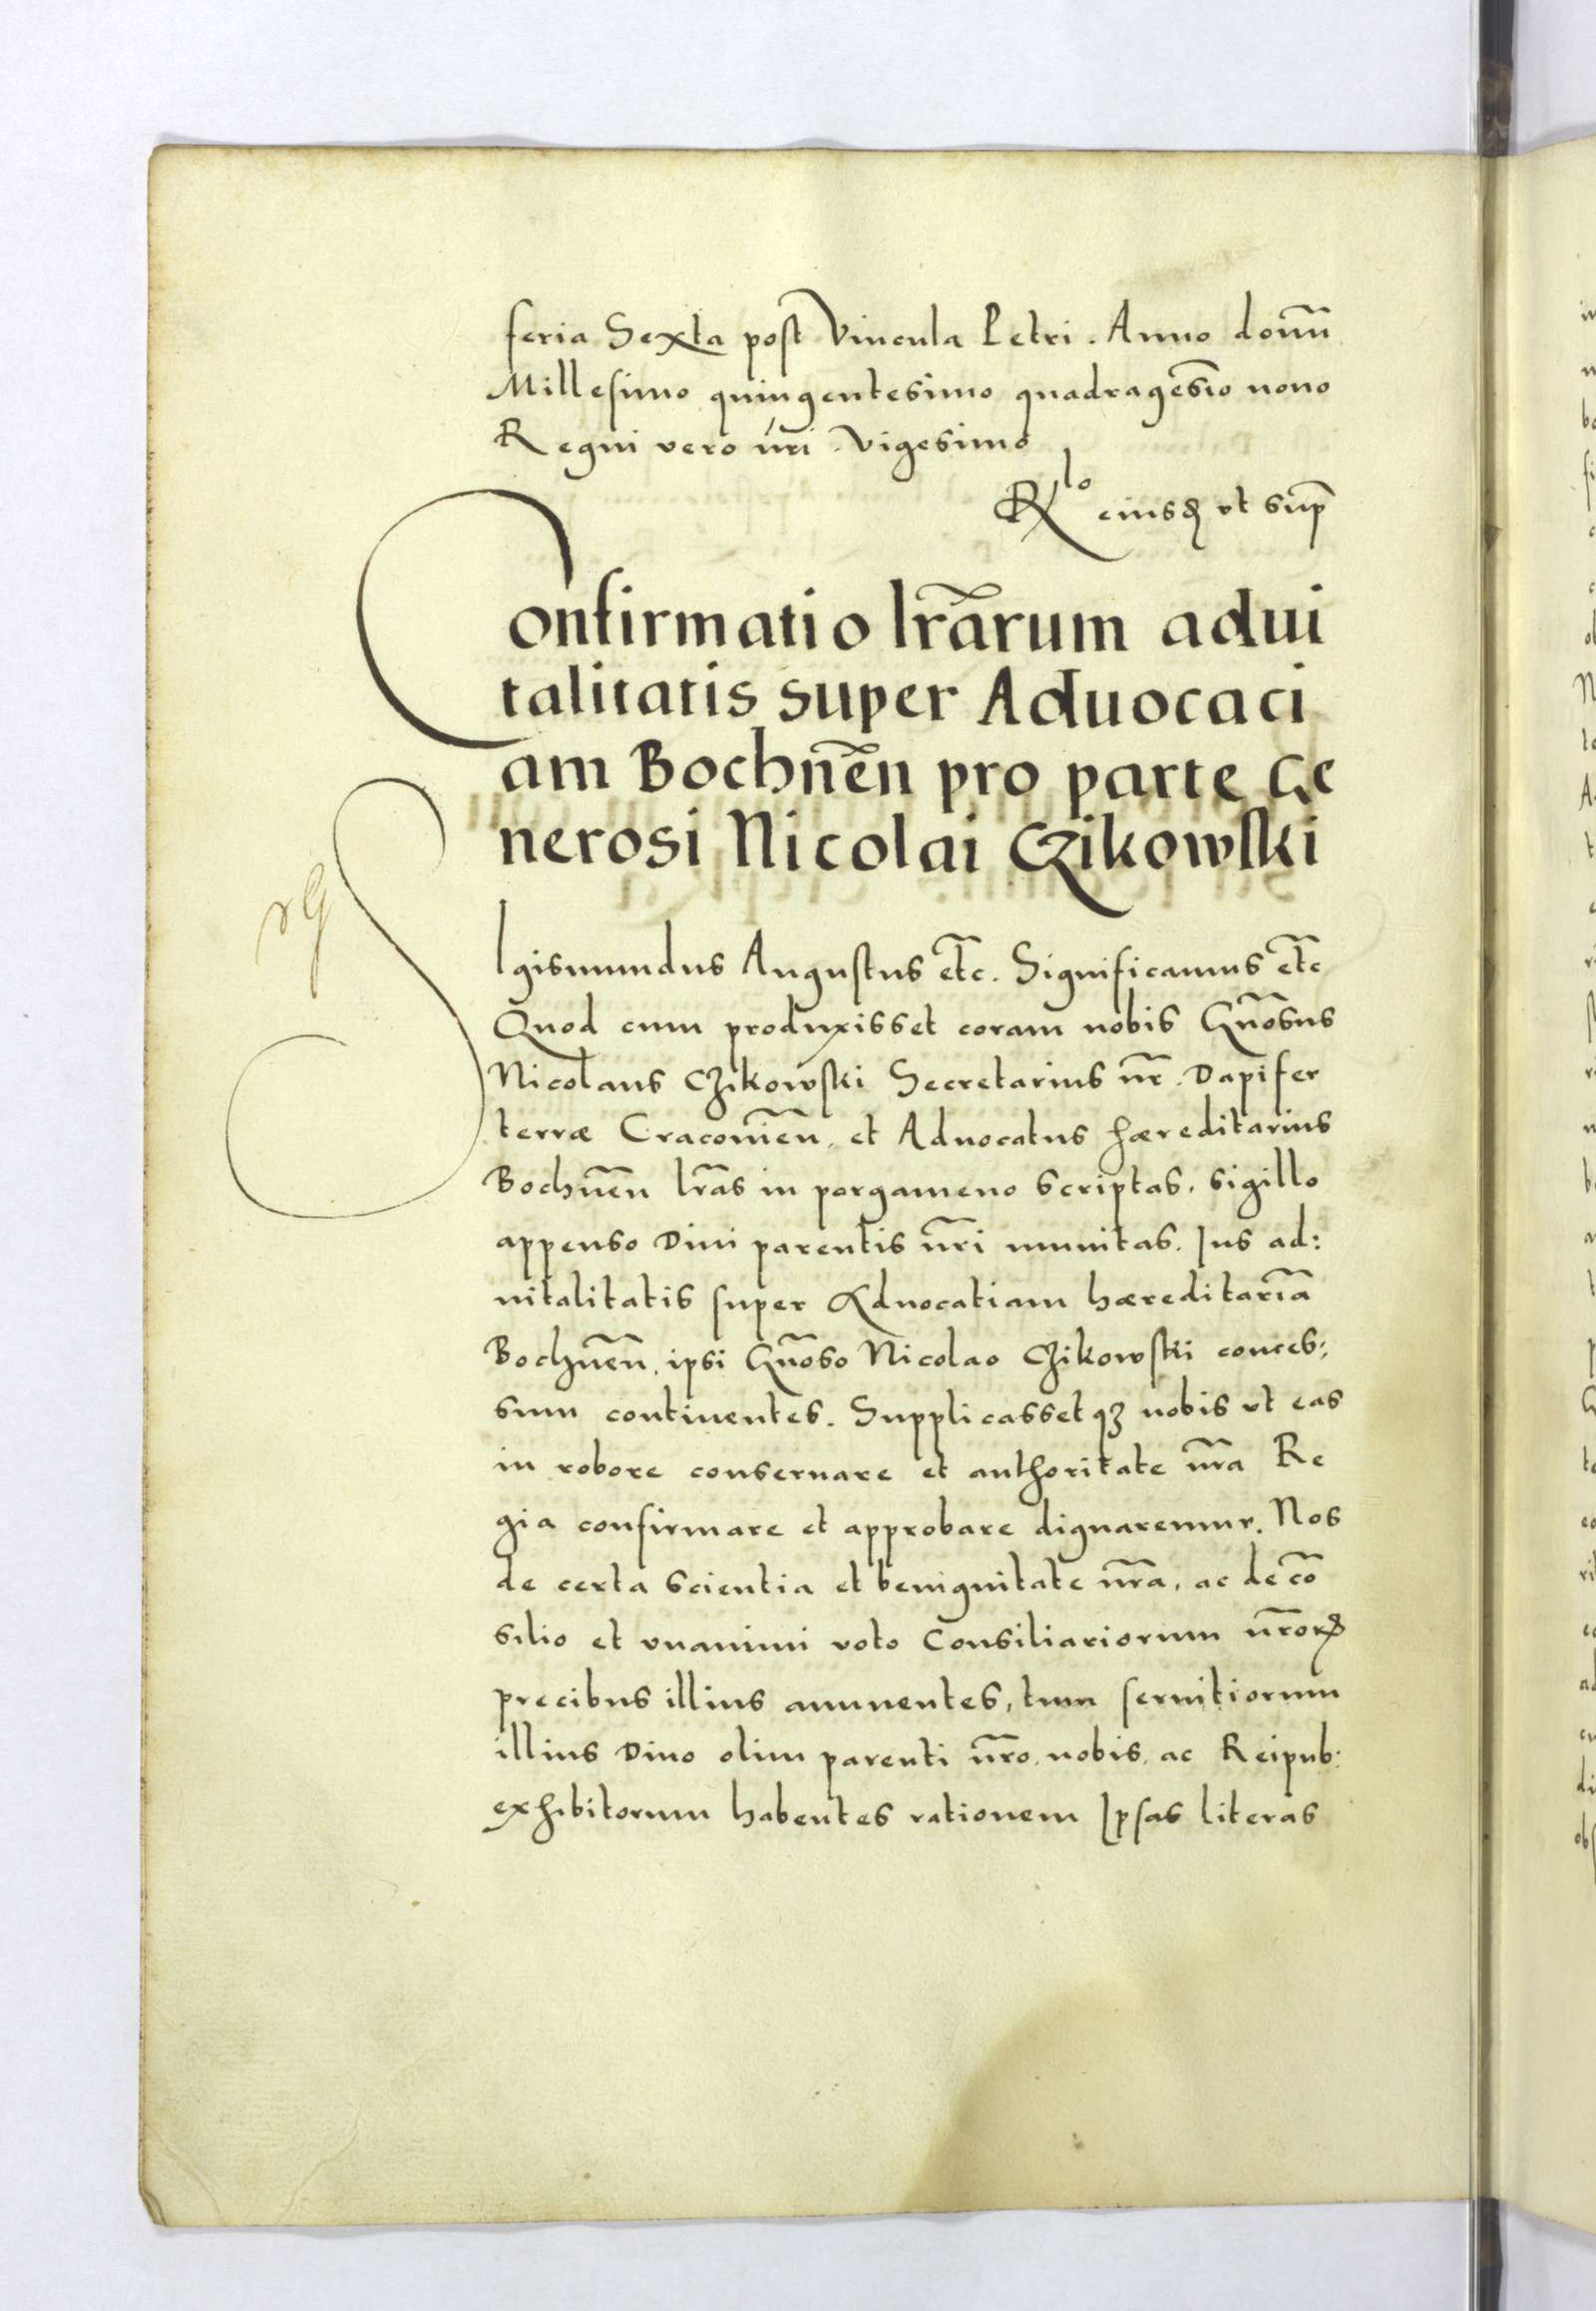 feria Sexta post Vincula Petri. Anno domĩ
Millesimo quingentesimo quadragesĩo nono
Regni vero nr̃i. Vigesimo
Rlo eiusd ut sup
Confirmatio lrãrum adui
talitatis super Aduocaci
am Bochnẽn pro parte Ge
nerosi Nicolai Czikowski
SIgismundus Augustus etc̃. Significamus etc̃
Quod cum produxisset coram nobis Gnõsus
Nicolaus Czikowski Secretarius nr̃. Dapifer
terræ Cracoviẽn. et Aduocatus hæreditarius
Bochnẽn lrãs in pargameno scriptas, sigillo
appenso Diui parentis nr̃i munitas. Jus ad:
uitalitatis super Aduocatiam hæreditariã
Bochnẽn. ipsi Gnõso Nicolao Czikowski conces:
sum continentes. Supplicassetqꝫ nobis ut eas
in robore conseruare et authoritate nr̃a Re
gia confirmare et approbare dignaremur. Nos
de certa scientia et benignitate nr̃a, ac de cõ
silio et vnanimi voto Consiliariorum nr̃orꝝ
precibus illius annuentes, tum seruitiorum
illius Diuo olim parenti nr̃o. nobis. ac Reipub:
exhibitorum habentes rationem Ipsas literas